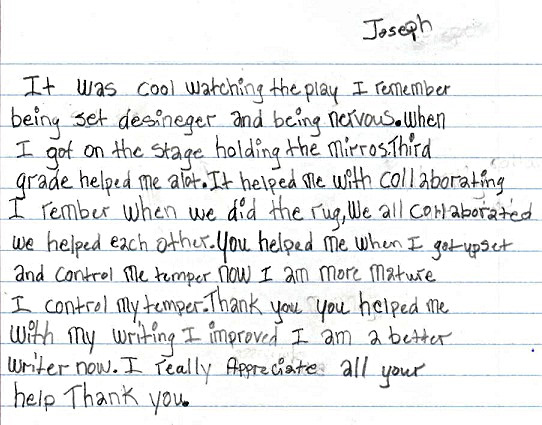 Joseph
It was cool watching the play I remember
being set desineger and being nervous.When
I got on the stage holding the mirros.Third
grade helped me alot.It helped me with collaborating
I rember when we did the rug,We all corraborated
we helped each other.You helped me when I got upset
and control me temper now I am more mature
I control my temper.Thank you you helped me
with my writing I improved I am a better
writer now.I really Appreciate all your
help Thank you.